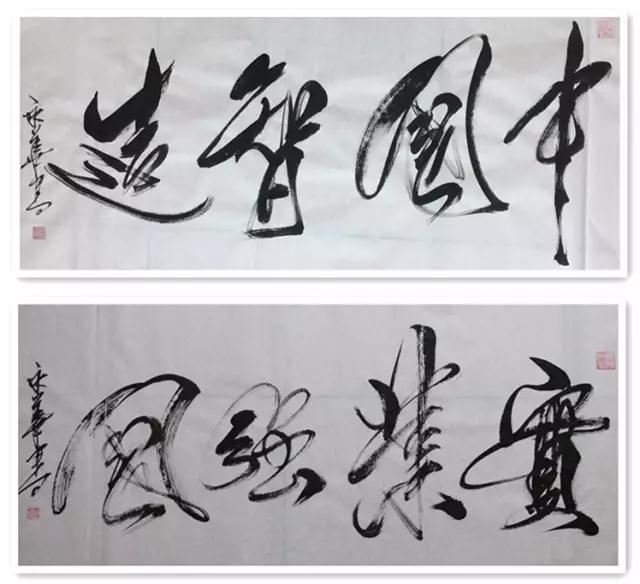 中國智造
實業強國